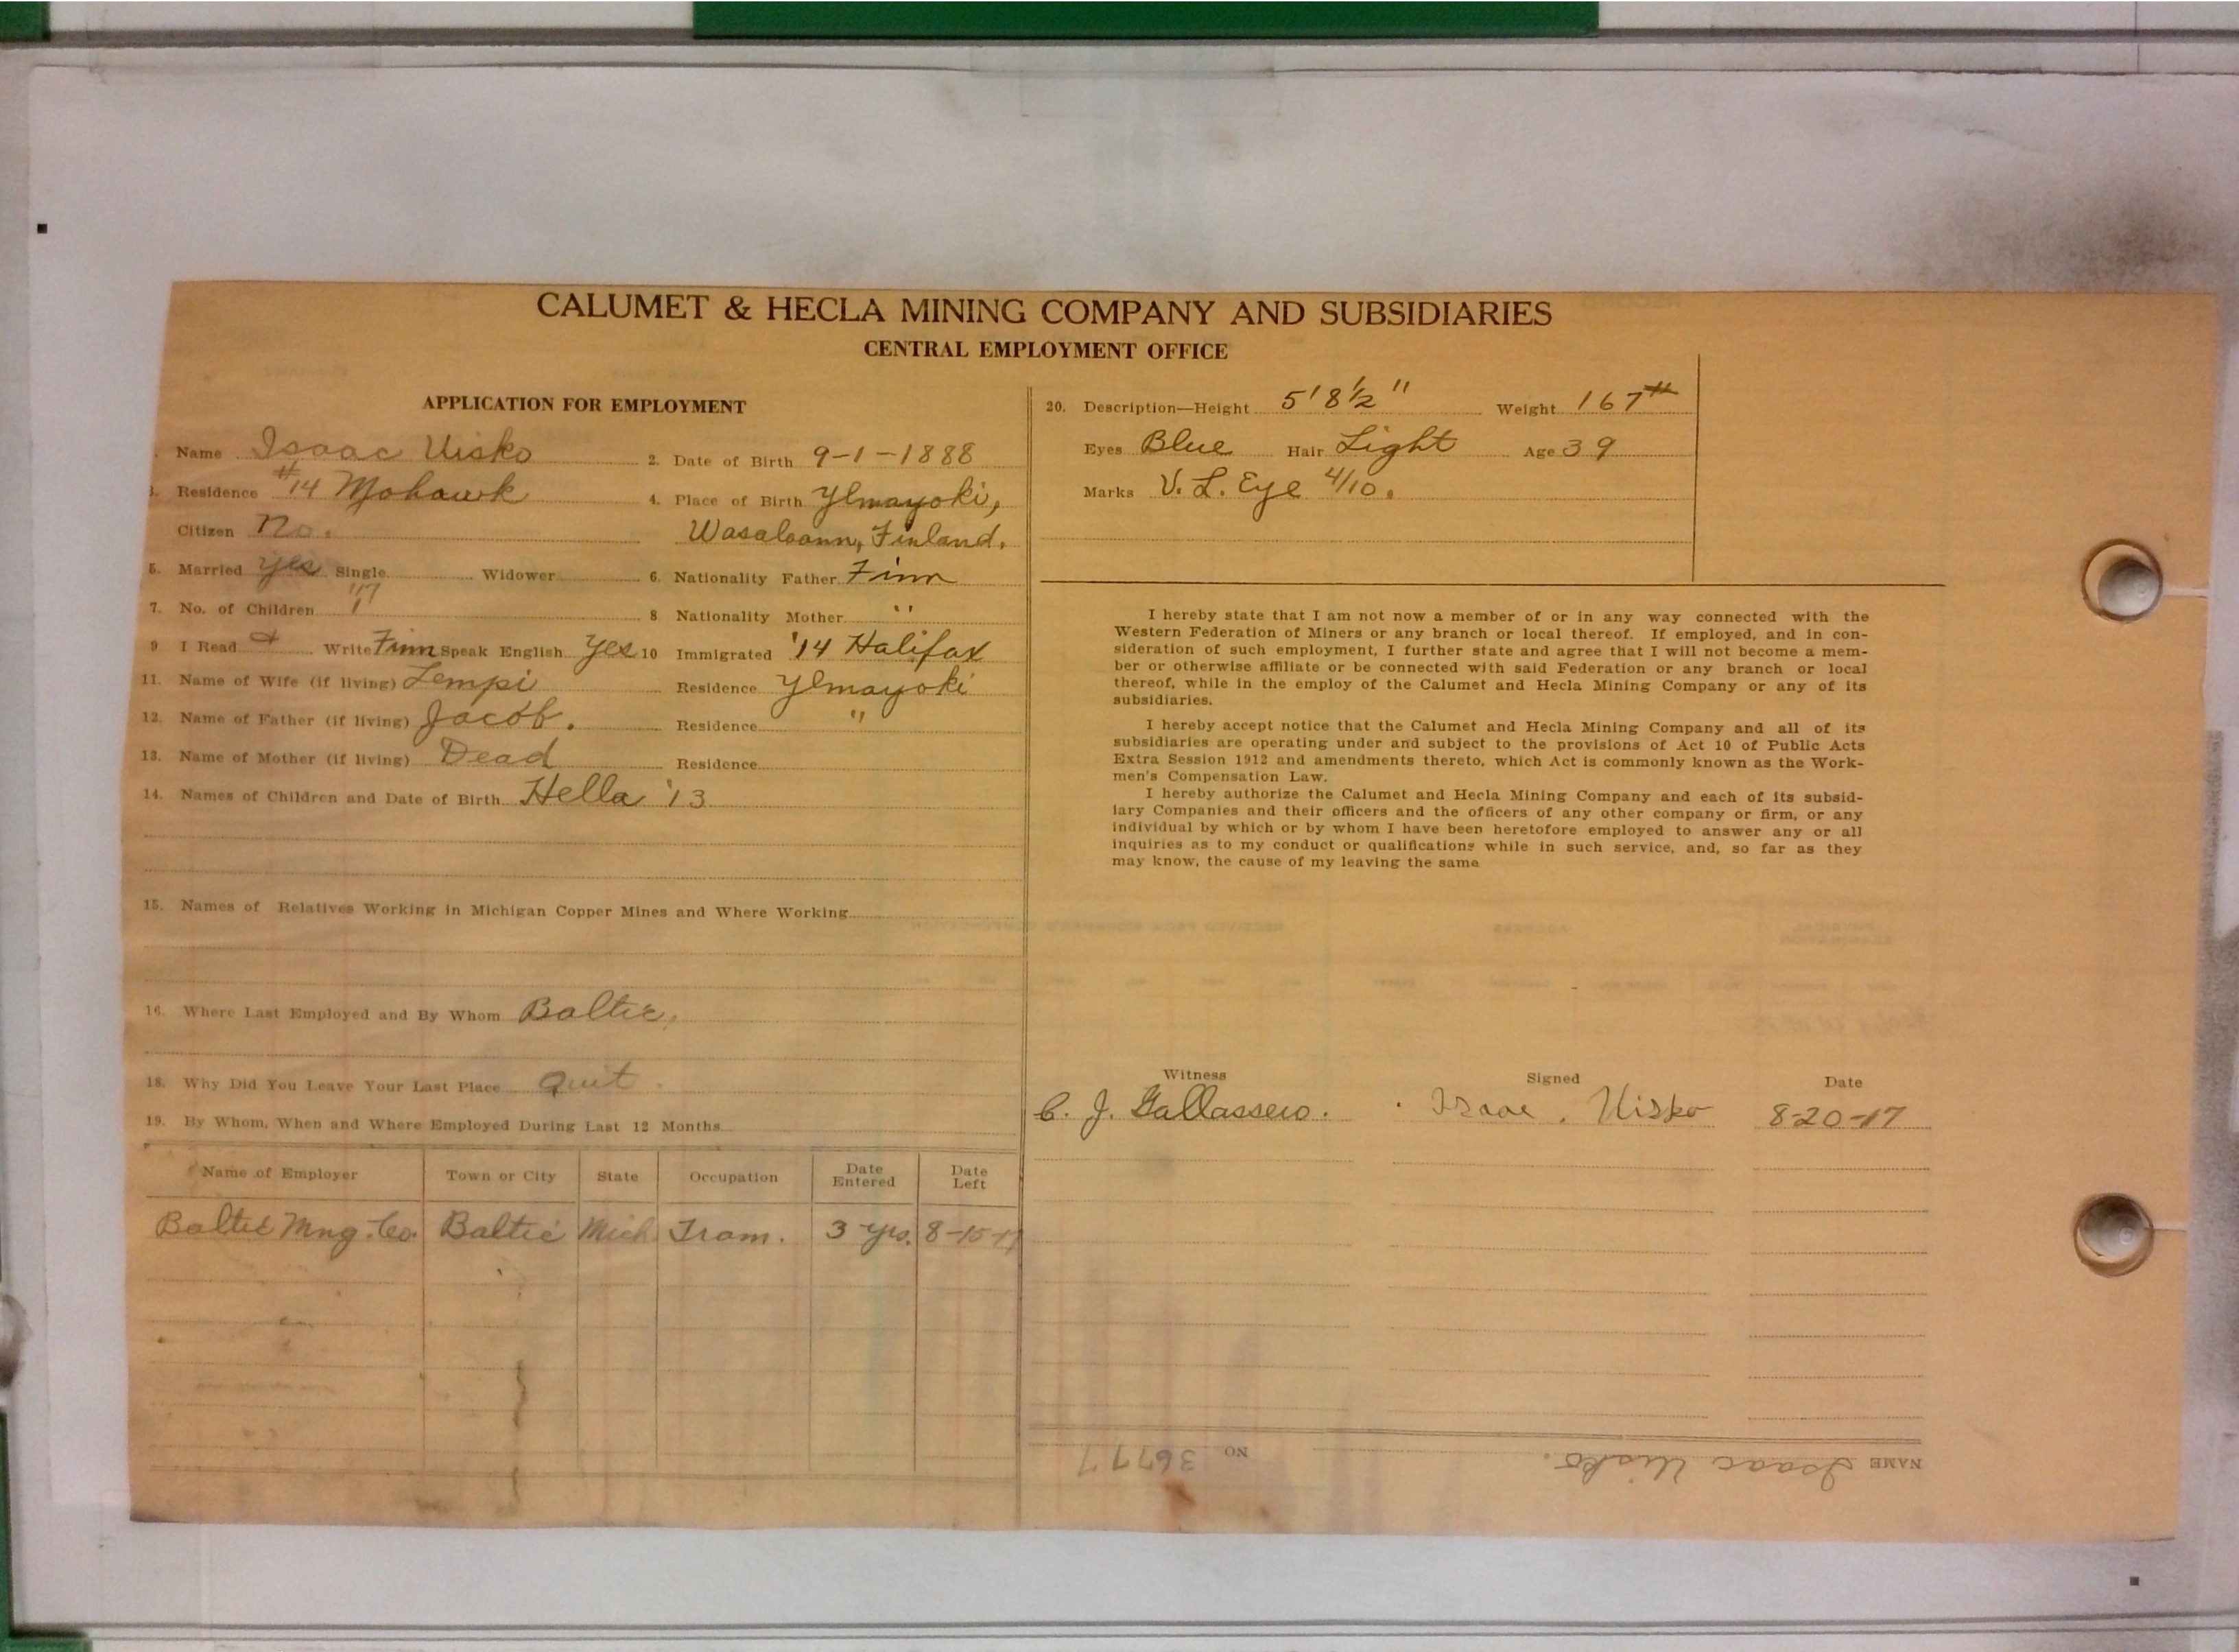 CALUMET & HECLA MINING COMPANY AND SUBSIDIARIES
CENTRAL EMPLOYMENT OFFICE
APPLICATION FOR EMPLOYMENT
Name Isaac Uisko 2. Date of Birth 9-1-1888
3. Residence #14 Mohawk 4. Place of Birth Ylmayoki,
Citizen No. Wasalaann, Finland.
5. Married yes Single Widower 6. Nationality Father Finn
'17
7. No. of Children 1 8 Nationality Mother "
9 I Read & Write Finn Speak English Yes 10 Immigrated '14 Halifax
11. Name of Wife (if living) Lempi Residence Ylmayoki
12. Name of Father (if living) Jacob. Residence "
13. Name of Mother (if living) Dead Residence
14. Names of Children and Date of Birth Hella '13
15. Names of Relatives Working in Michigan Copper Mines and Where Working
16. Where Last Employed and By Whom Baltic,
18. Why Did You Leave Your Last Place Quit.
19. By Whom, When and Where Employed During Last 12 Months
Name of Employer Town or City State Occupation Date Entered Date Left
Baltic Mng. Co. Baltic Mich Tram. 3 yrs. 8-15-17
20. Description—Height 5' 8 1/2" Weight 167#
Eyes Blue Hair Light Age 39
Marks V. L. Eye 4/10.
I hereby state that I am not now a member of or in any way connected with the
Western Federation of Miners or any branch or local thereof. If employed, and in con-
sideration of such employment, I further state and agree that I will not become a mem-
ber or otherwise affiliate or be connected with said Federation or any branch or local
thereof, while in the employ of the Calumet and Hecla Mining Company or any of its
subsidiaries.
I hereby accept notice that the Calumet and Hecla Mining Company and all of its
subsidiaries are operating under and subject to the provisions of Act 10 of Public Acts
Extra Session 1912 and amendments thereto, which Act is commonly known as the Work-
men's Compensation Law.
I hereby authorize the Calumet and Hecla Mining Company and each of its subsid-
iary Companies and their officers and the officers of any other company or firm, or any
individual by which or by whom I have been heretofore employed to answer any or all
inquiries as to my conduct or qualifications while in such service, and, so far as they
may know, the cause of my leaving the same
Witness Signed Date
C. J. Gallassero. Isaac. Uisko 8-20-17
NAME Isaac Uisko. NO 36777